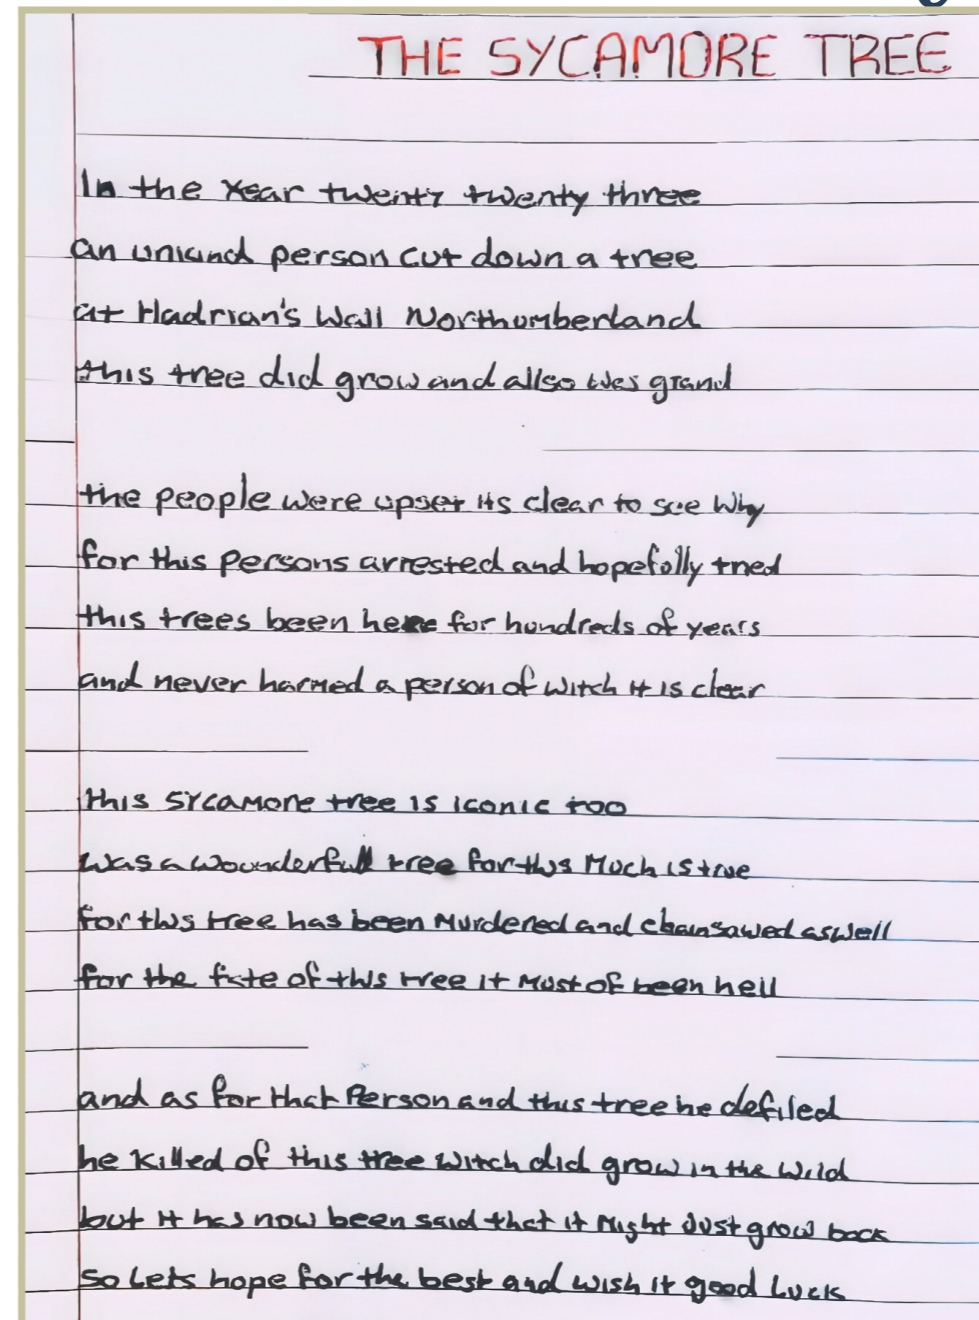 THE SYCAMORE TREE
In the year twenty twenty three
an unkind person cut down a tree
at Hadrian's Wall Northumberland
this tree did grow and allso was grand
the people were upset its clear to see why
for this persons arrested and hopefully tried
this trees been here for hundreds of years
and never harmed a person of witch it is clear
this sycamore tree is iconic too
was a wounderfull tree for this much is true
for this tree has been murdered and chainsawed aswell
for the fate of this tree it must of been hell
and as for that person and this tree he defiled
he killed of this tree witch did grow in the wild
but it has now been said that it might Just grow back
so lets hope for the best and wish it good luck